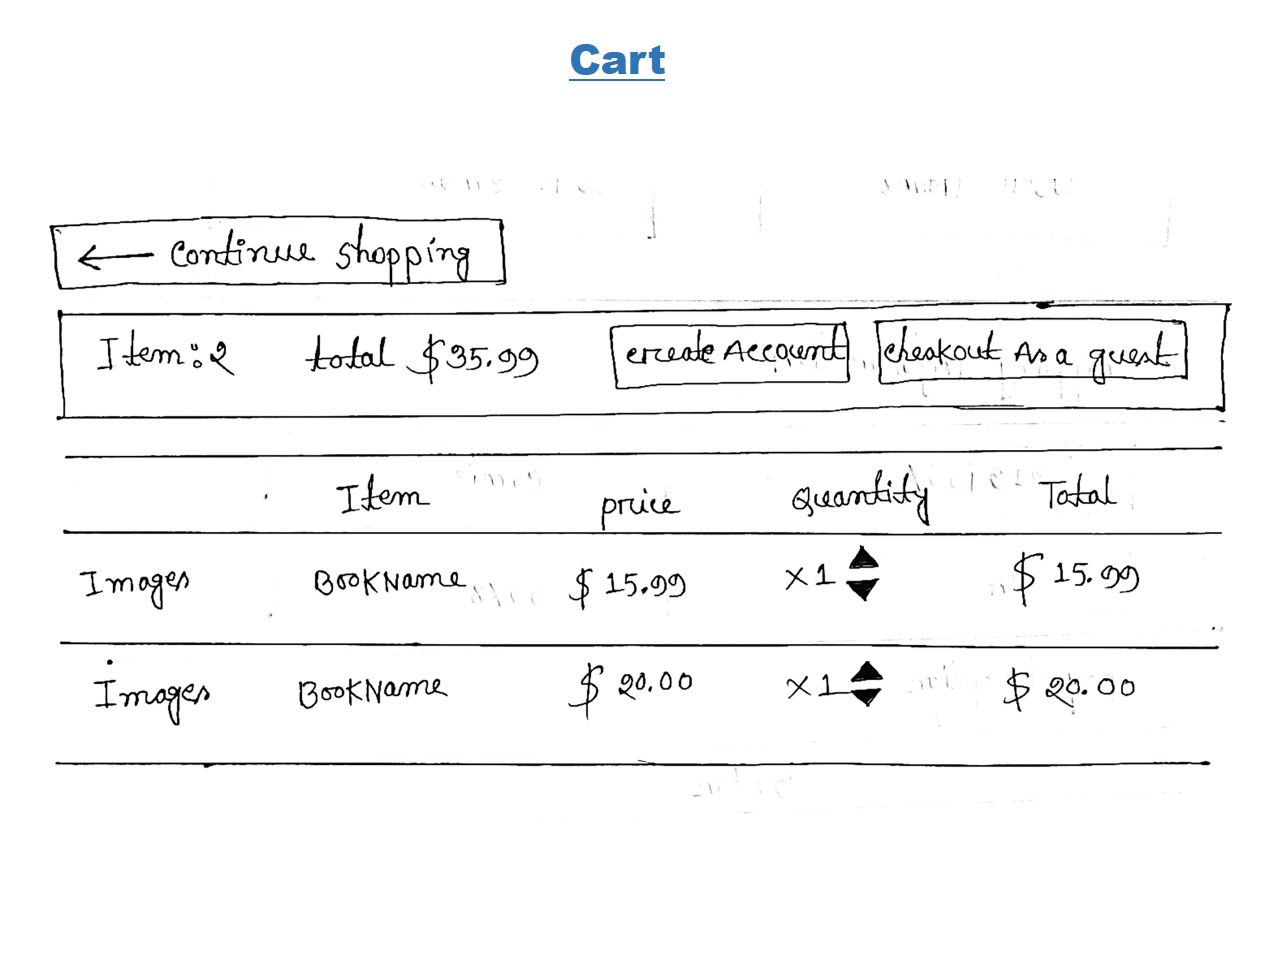 Cart
← Continue shopping
Item:2 total $35.99 create Account cheakout As a guest
Item price Quantity Total
Images BookName $ 15.99 x1 $ 15.99
Images BookName $ 20.00 x1 $ 20.00